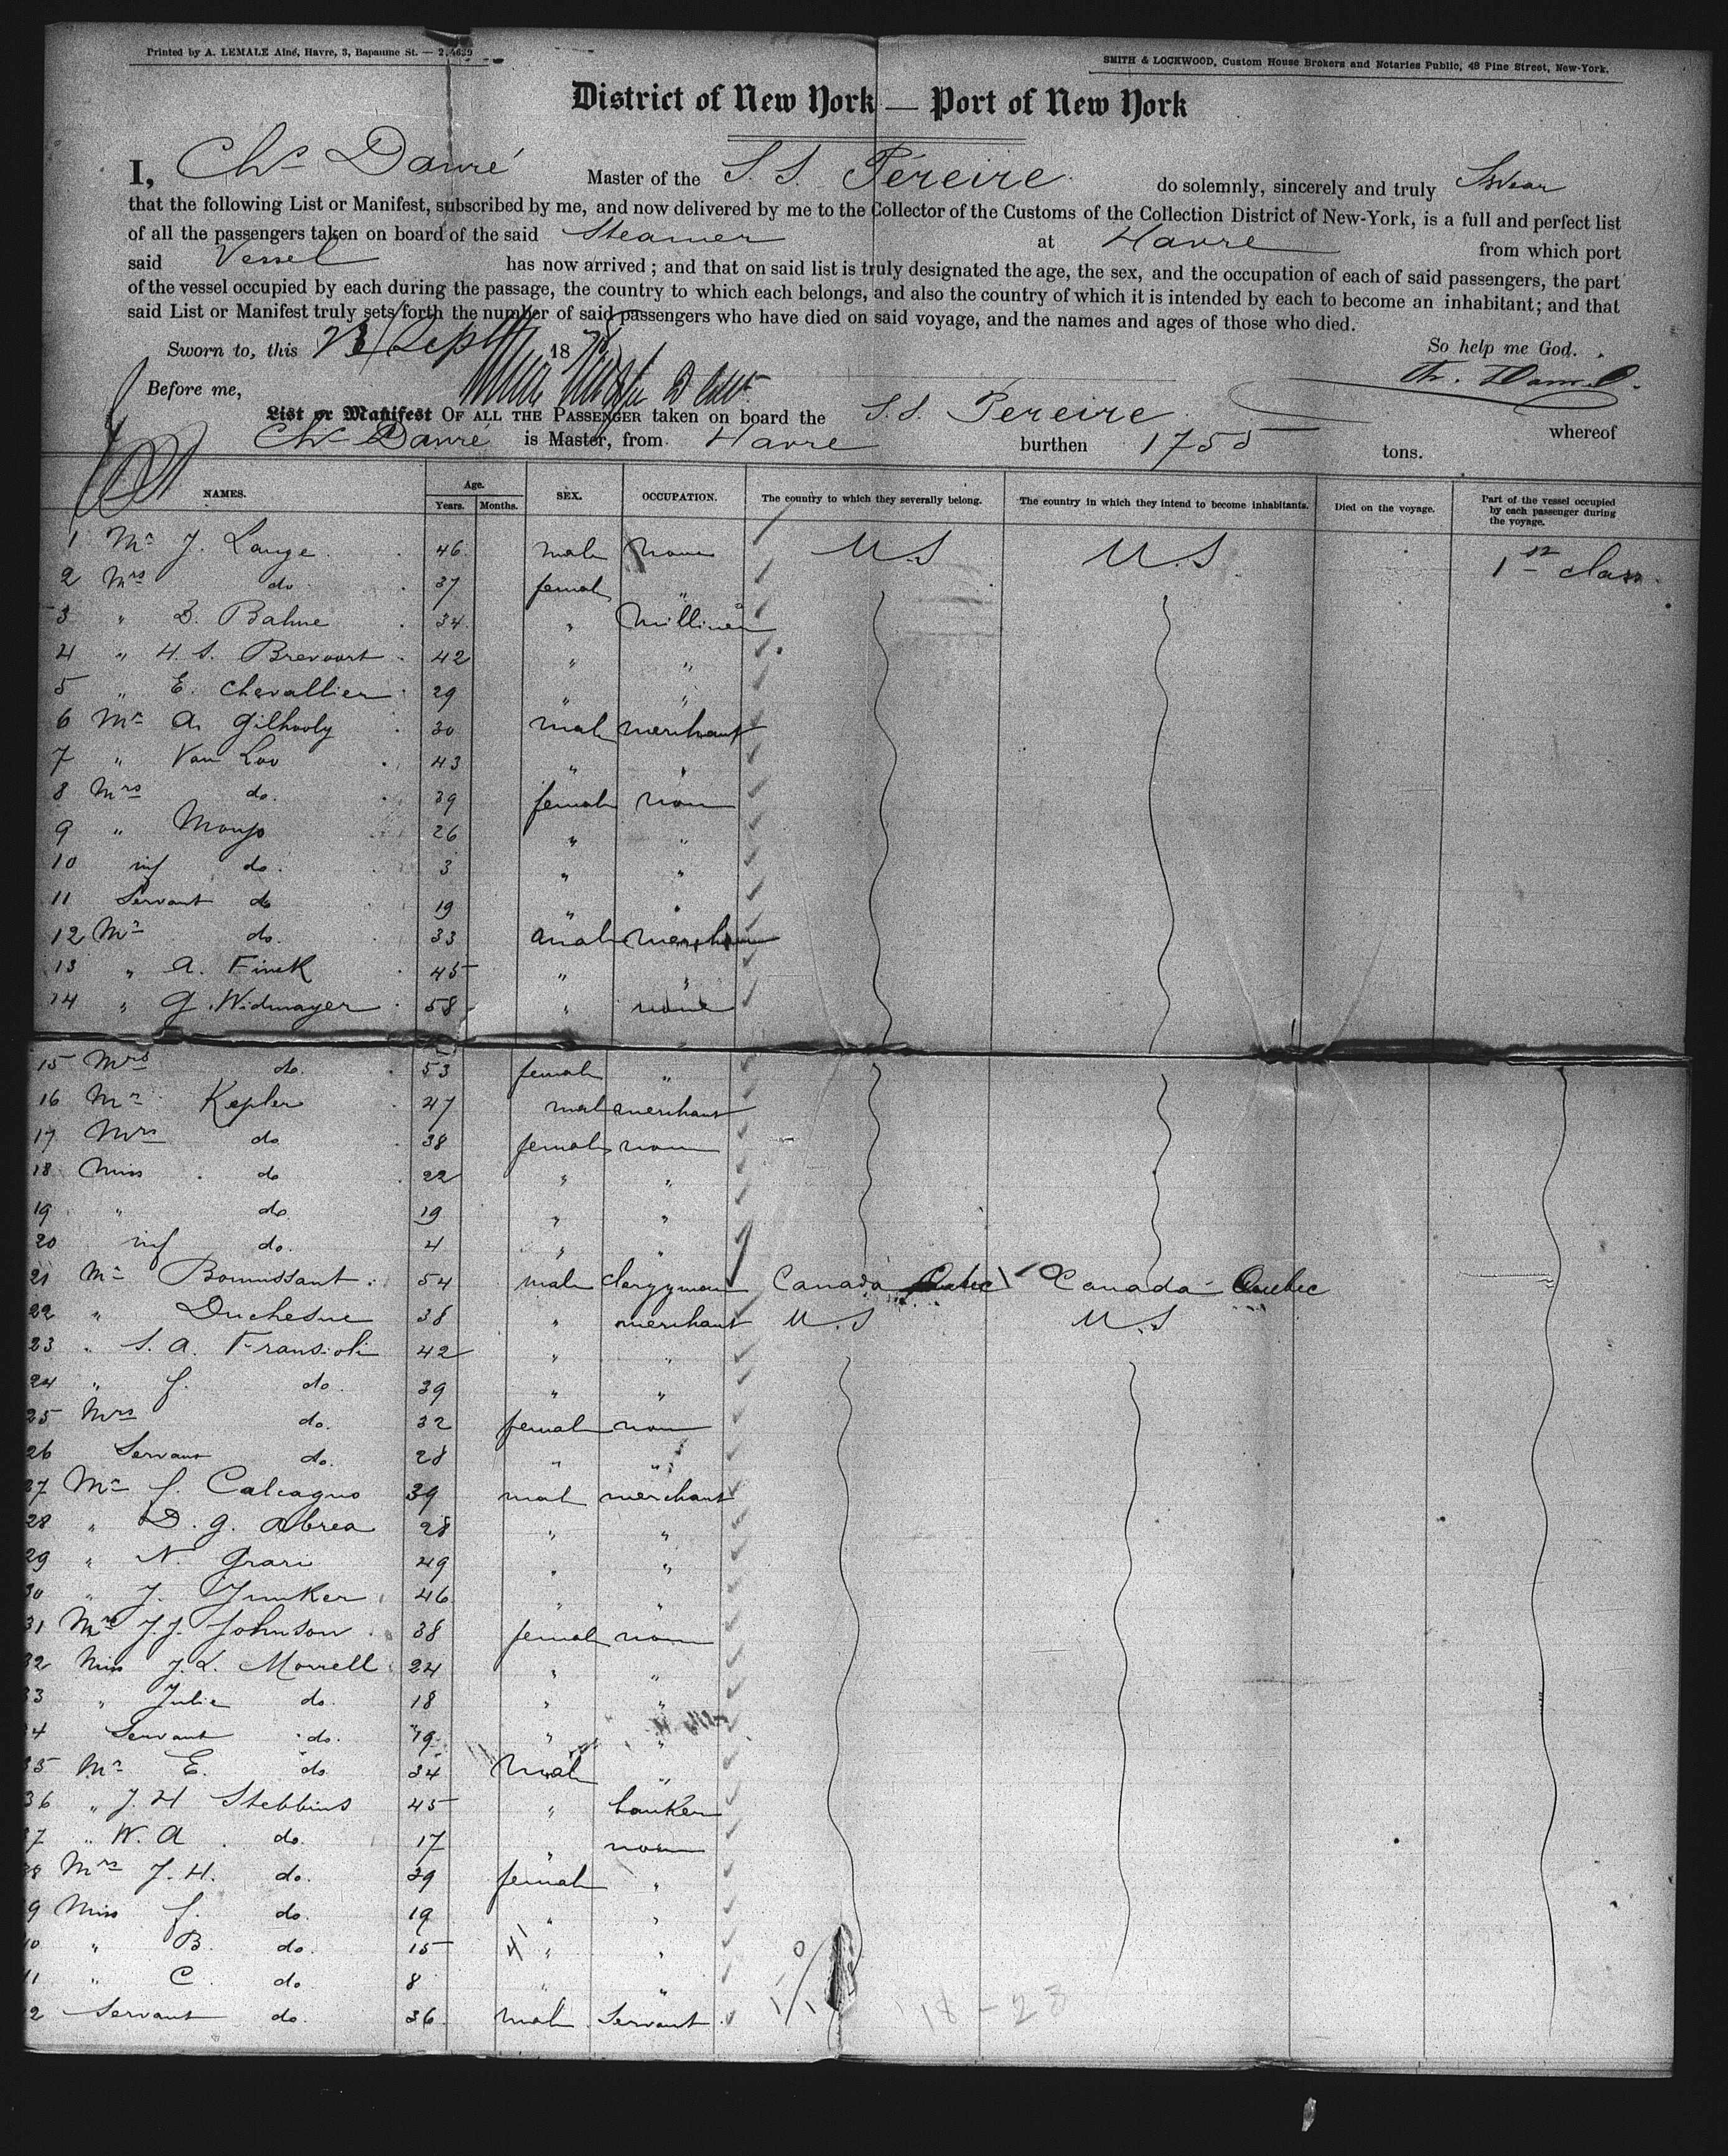 Printed by A. LEMALE Ainé, Havre, 3, Bapaume St. — 2.4639
SMITH & LOCKWOOD, Custom House Brokers and Notaries Public, 48 Pine Street, New-York.
District of New York — Port of New York
I, Chs Danré Master of the S. S. Péreire do solemnly, sincerely and truly Swear
that the following List or Manifest, subscribed by me, and now delivered by me to the Collector of the Customs of the Collection District of New-York, is a full and perfect list
of all the passengers taken on board of the said Steamer at Havre from which port
said Vessel has now arrived ; and that on said list is truly designated the age, the sex, and the occupation of each of said passengers, the part
of the vessel occupied by each during the passage, the country to which each belongs, and also the country of which it is intended by each to become an inhabitant; and that
said List or Manifest truly sets forth the number of said passengers who have died on said voyage, and the names and ages of those who died.
Sworn to, this Sept 18 So help me God.
Before me,
List or Manifest OF ALL THE PASSENGER taken on board the S. S. Pereire whereof
Chs Danré is Master, from Havre burthen 1755 tons.
NAMES. Age. Years. Months. SEX. OCCUPATION. The country to which they severally belong. The country in which they intend to become inhabitants. Died on the voyage. Part of the vessel occupied by each passenger during the voyage.
1 Mr J. Lange 46 male none U.S U.S. 1st class
2 Mrs do 37 female "
3 " B. Bahne 34 " Milliner
4 " H. S. Brevoort 42 " "
5 " E. Chevallier 29 " "
6 Mr A. Gilhooly 30 male merchant
7 " Van Loo 43 " "
8 Mrs do. 39 female none
9 " 26 " "
10 inf do. 3 " "
11 Servant do 19 " "
12 Mr do. 33 male merchant
13 " A. Finck 45 " "
14 " G. Widmayer 58 " none
15 Mrs do. 53 female "
16 Mr Kepler 47 male merchant
17 Mrs do 38 female none
18 Miss do 22 " "
19 " do 19 " "
20 inf do. 4 " "
21 Mr Bonnissant 54 male clergyman Canada Quebec Canada - Quebec
22 " Duchesne 38 " merchant U.S U.S
23 " S. A. Fransioli 42 " "
24 " J. do. 39 " "
25 Mrs do. 32 female none
26 Servant do. 28 " "
27 Mr J. Calcagno 39 male merchant
28 " D. G. Abrea 28 " "
29 " N. Grari 49 " "
30 " J. Junker 46 " "
31 Mrs J. J. Johnson 38 female none
32 Miss J. L. Morrell 24 " "
33 " Julie do. 18 " "
34 Servant do. 19 " "
35 Mr E. do 34 male "
36 " J. H Stebbins 45 " banker
37 " W. A do. 17 " none
38 Mrs J. H. do. 39 female "
39 Miss J. do. 19 " "
40 " B. do. 15 " "
41 " C. do 8 " "
42 Servant do. 36 male Servant
18 - 28